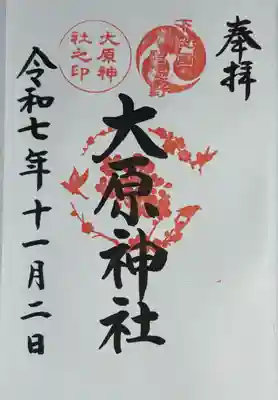 奉拝
大原神社
大原神
社之印
令和七年十一月二日